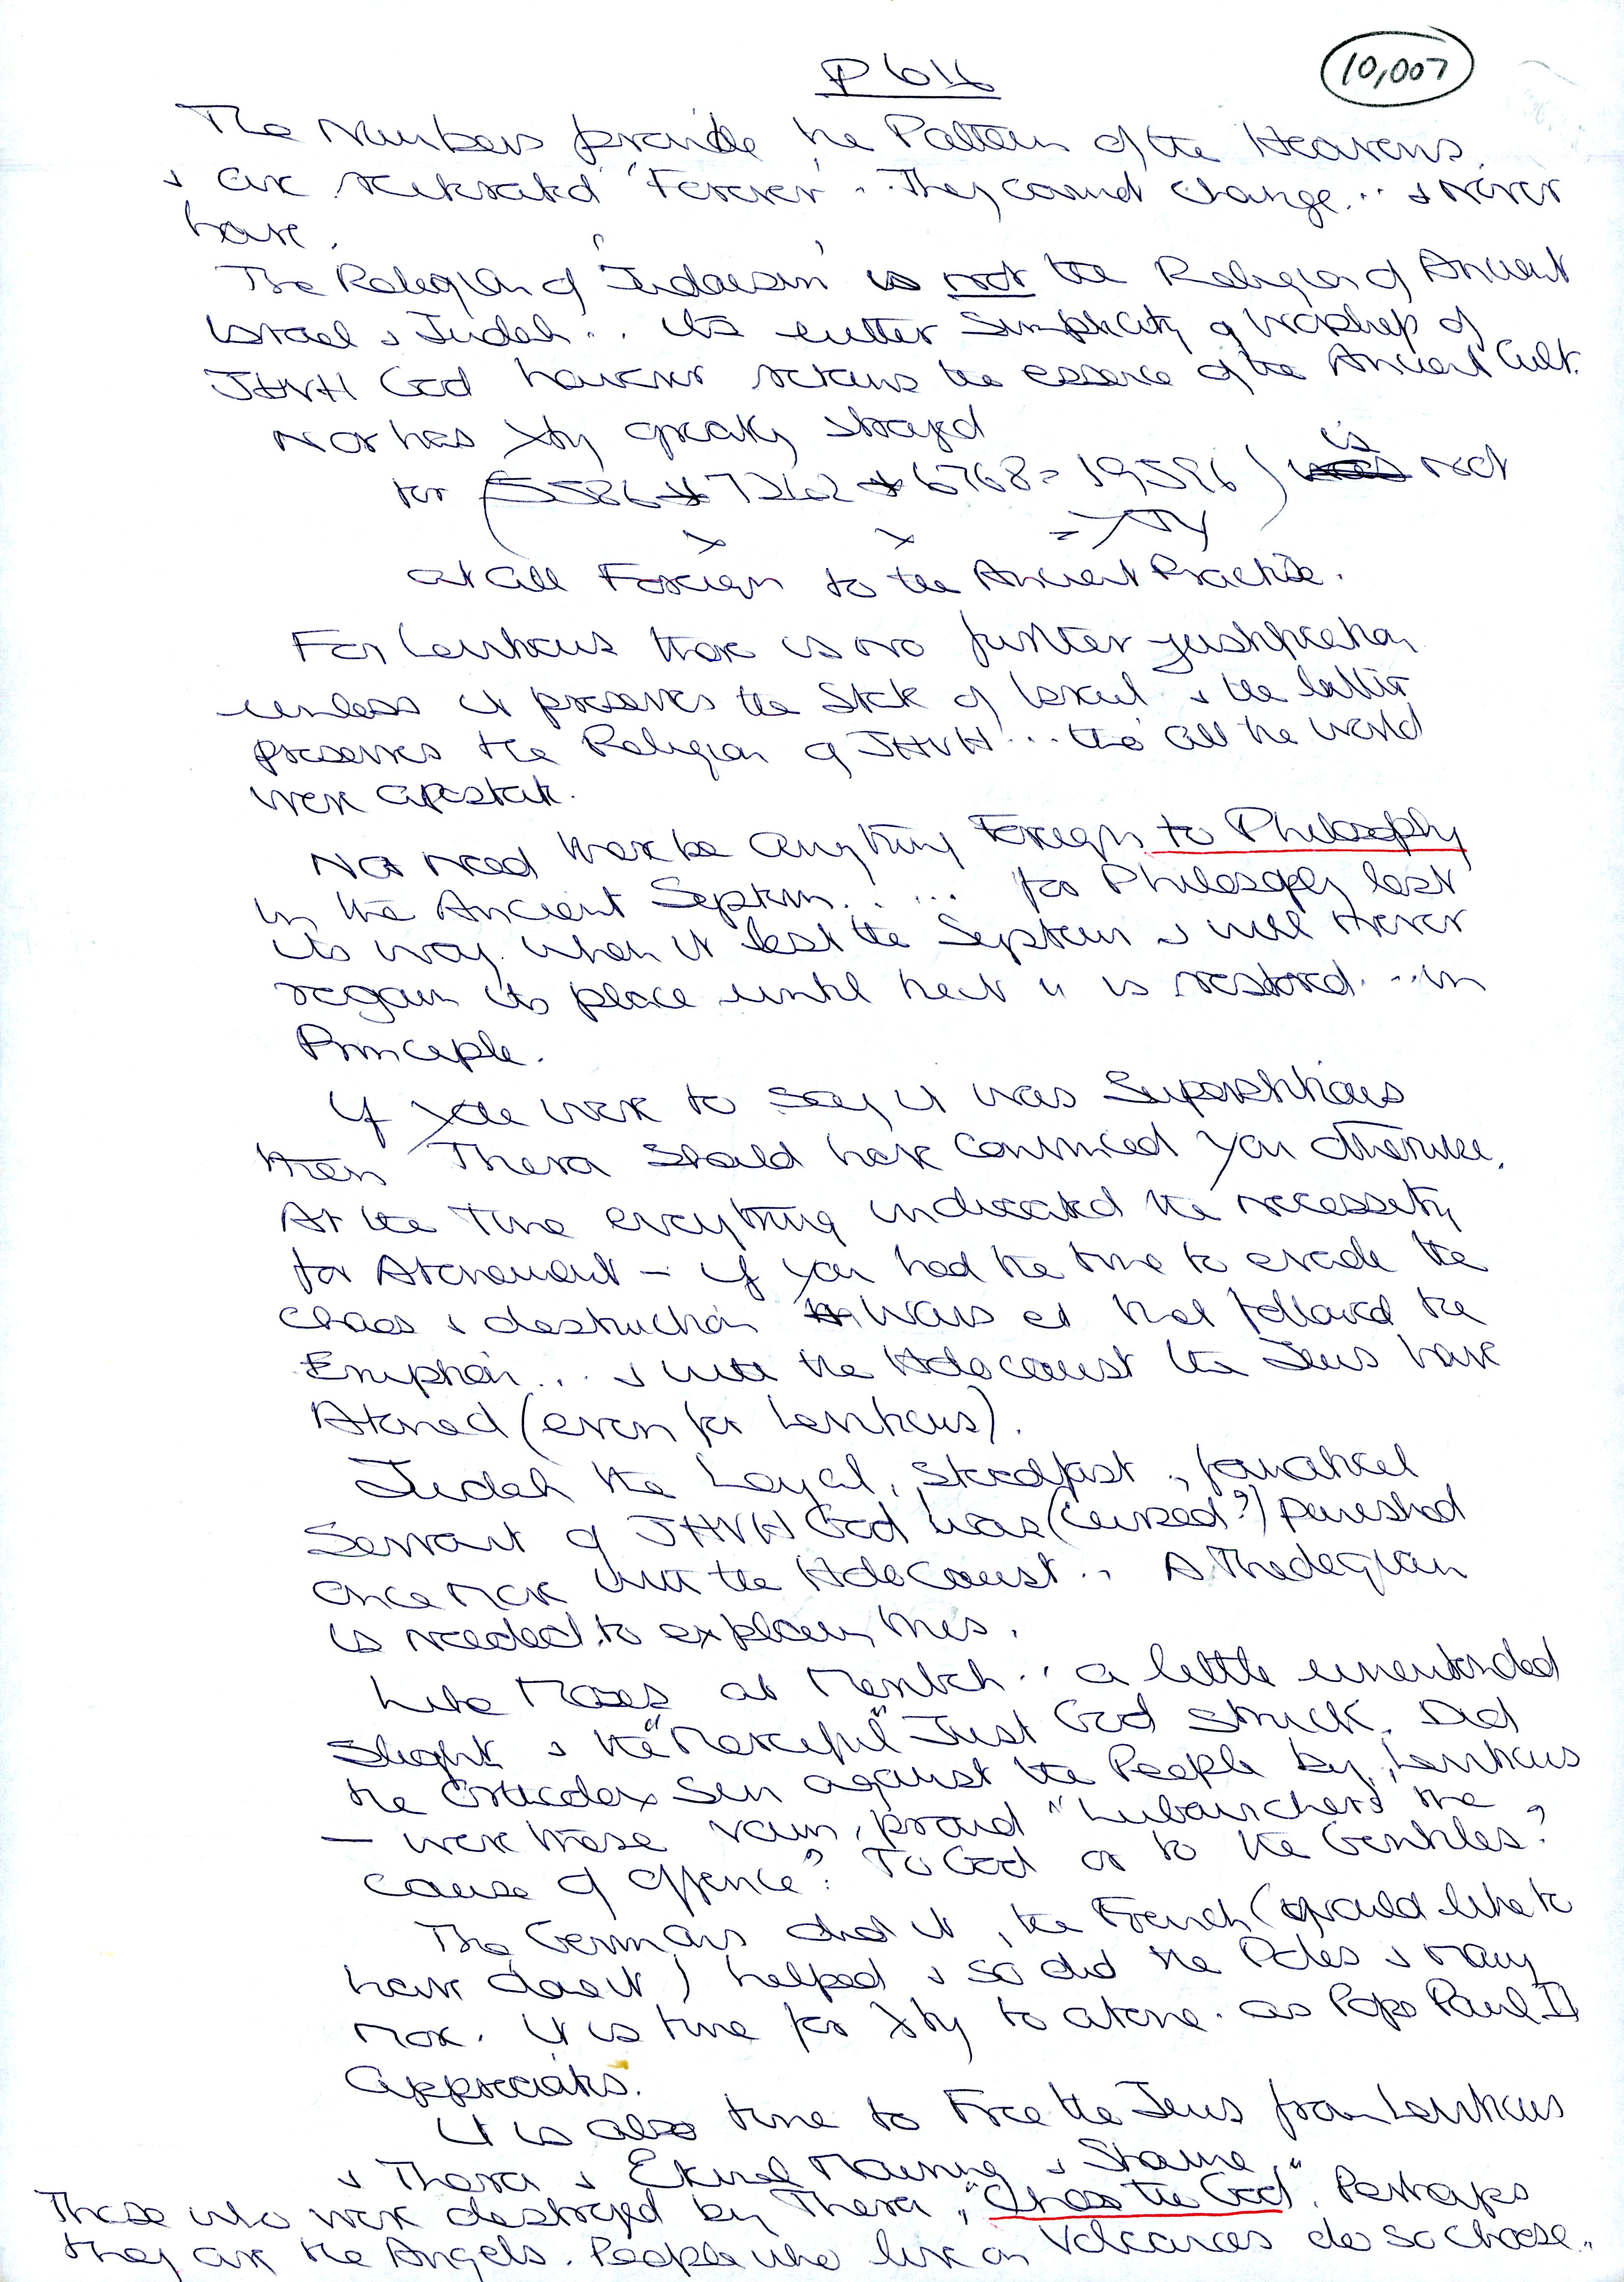 P 614
10,007
The Numbers provide the Pattern of the Heavens,
& are reiterated 'Forever'. They cannot change... & never
have.
The Religion of 'Judaism' is not the Religion of Ancient
Israel & Judah... its utter Simplicity of Worship of
JHVH God however retains the essence of the Ancient Cult.
Nor has Xty greatly strayed
for (5586 + 7262 + 6768 = 19,596) is not
= XTY
at all Foreign to the Ancient Practise.
For Leviticus there is no further justification
unless it preserves the State of Israel & the latter
preserves the Religion of JHVH... tho' all the World
were apostate.
Nor need there be anything Foreign to Philosophy
in the Ancient System..... for Philosophy lost
its way when it lost the System & will Never
regain its place until that " is restored... in
Principle.
If you were to say it was Superstitious
then Thera should have convinced you otherwise.
At the Time everything indicated the necessity
for Atonement - if you had the time to evade the
chaos & destruction Wars et that followed the
Eruption... & with the Holocaust the Jews have
Atoned (even for Leviticus).
Judah the Loyal, Steadfast, fanatical
Servant of JHVH God was (cursed?) punished
once more with the Holocaust.. A Theologian
is needed to explain this.
Like Moses at Meribah.. a little unintended
Slight & the "Merciful" Just God struck. Did
the Orthodox Sin against the People by Leviticus
- were these vain, proud "Lubavichers" the
cause of offence? To God or to the Gentiles?
The Germans did it, the French (would like to
have done it) helped & so did the Poles & many
more. It is time for Xty to atone. as Pope Paul II
Appreciates.
It is also time to Free the Jews from Leviticus
& Thera & Eternal Mourning & Shame
Those who were destroyed by Thera, "Chose the God". Perhaps
they are the Angels. People who live on Volcanoes do so choose..